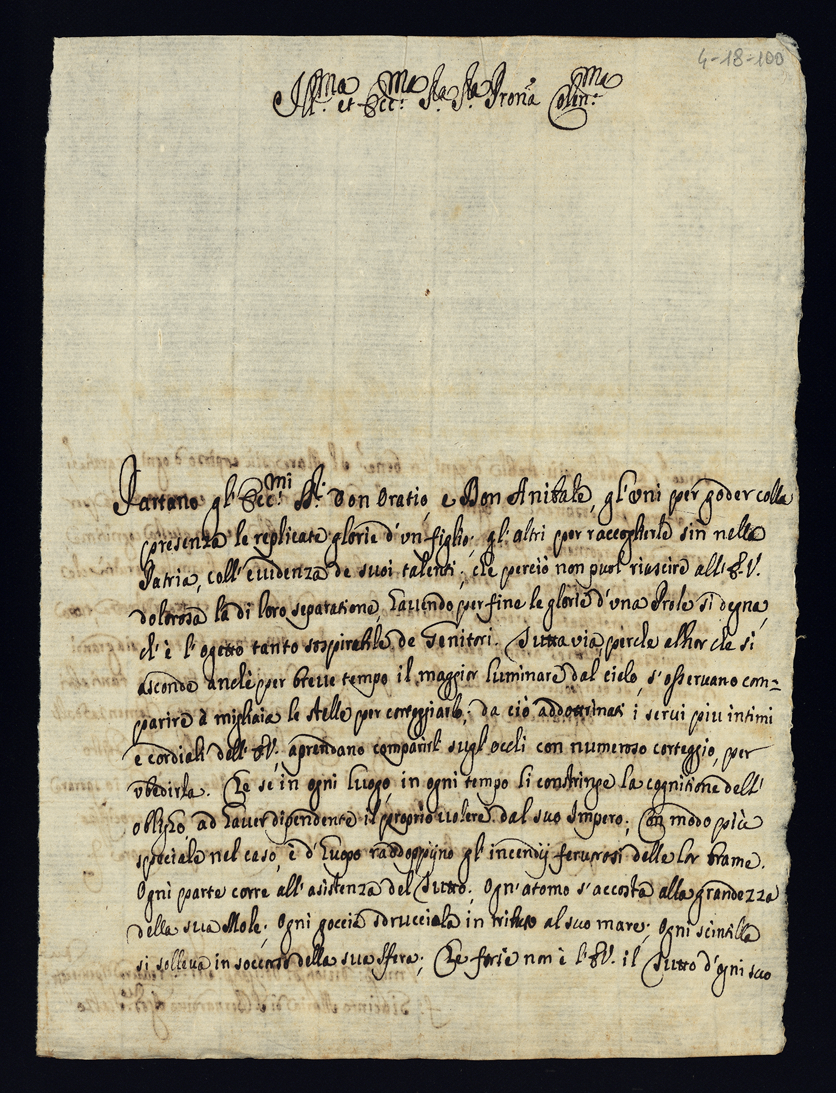 4-18-100
Ill.ma et Ecc.ma Sra Sra Prona Colen.ma
Partano gl' Ecc.mi SS.ri Don Oratio, e Don Anibale, gl' uni per goder colla
presenza le replicate glorie d'un figlio; gl' altri per raccoglierle sin nella
Patria, coll' evidenza de suoi talenti; che perciò non puol riuscire all' E.V.
dolorosa la di loro separatione, havendo per fine le glorie d'una Prole si degna,
ch' è l' ogetto tanto sospirabile de Genitori. Tutta via perche allhor che si
asconde anche per breve tempo il maggior luminare dal cielo, s'osservano com=
parire à migliaia le stelle per corteggiarlo; da ciò addottrinati i servi piu intimi
e cordiali dell' E.V. aprendano comparirli sugl' occhi con numeroso corteggio, per
vbedirla. Che se in ogni luogo, in ogni tempo li constringe la cognitione dell'
obligo, ad haver dipendente il proprio volere dal suo Impero; Con modo più
speciale nel caso, è d' huopo raddoppijno gl' incendij ferverosi delle lor brame.
Ogni parte corre all' asistenza del Tutto; Ogn' atomo s'accosta alla grandezza
della sua Mole; Ogni goccia sdrucciola in tributo al suo mare; Ogni scintilla
si solleva in soccorso della sua sfera; Che forse non è l' E.V. il Tutto d'ogni suo